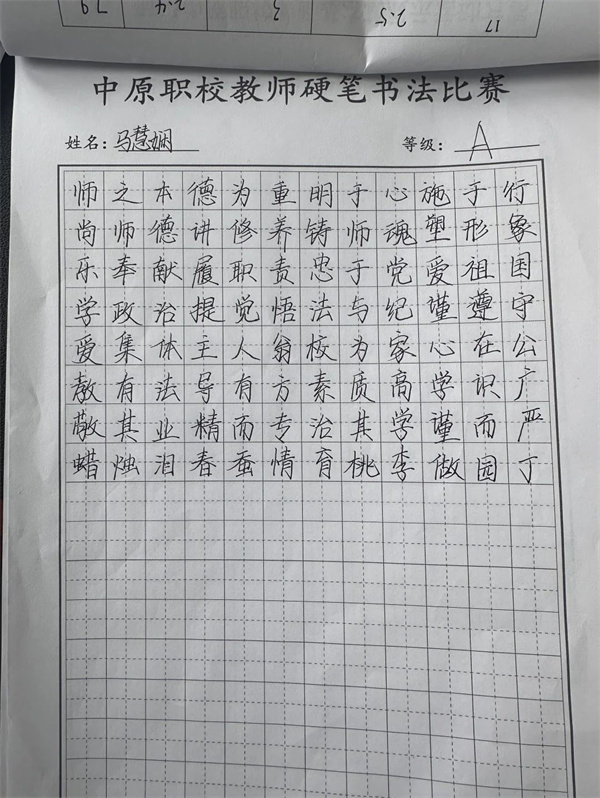 79 2.4 3 2.5 17
中原职校教师硬笔书法比赛
姓名：马慧娴 等级：A
师之本德为重明于心施于行
尚师德讲修养铸师魂塑形象
乐奉献履职责忠于党爱祖国
学政治提觉悟法与纪谨遵守
爱集体主人翁校为家心在公
教有法导有方素质高学识广
敬其业精而专治其学谨而严
蜡烛泪春蚕情育桃李做园丁